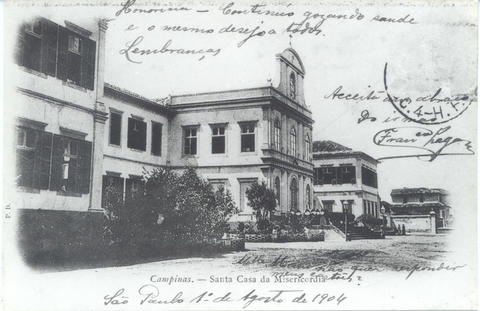 Honorina — Continuo gozando saude
e o mesmo desejo a todos.
Lembranças
Acceite um abraço
do irmão
Fran.co Lagos
C.
4-H
P. D.
Campinas. — Santa Casa da Misericordia
não quer responder
meus cartões?
São Paulo 1º de Agosto de 1904